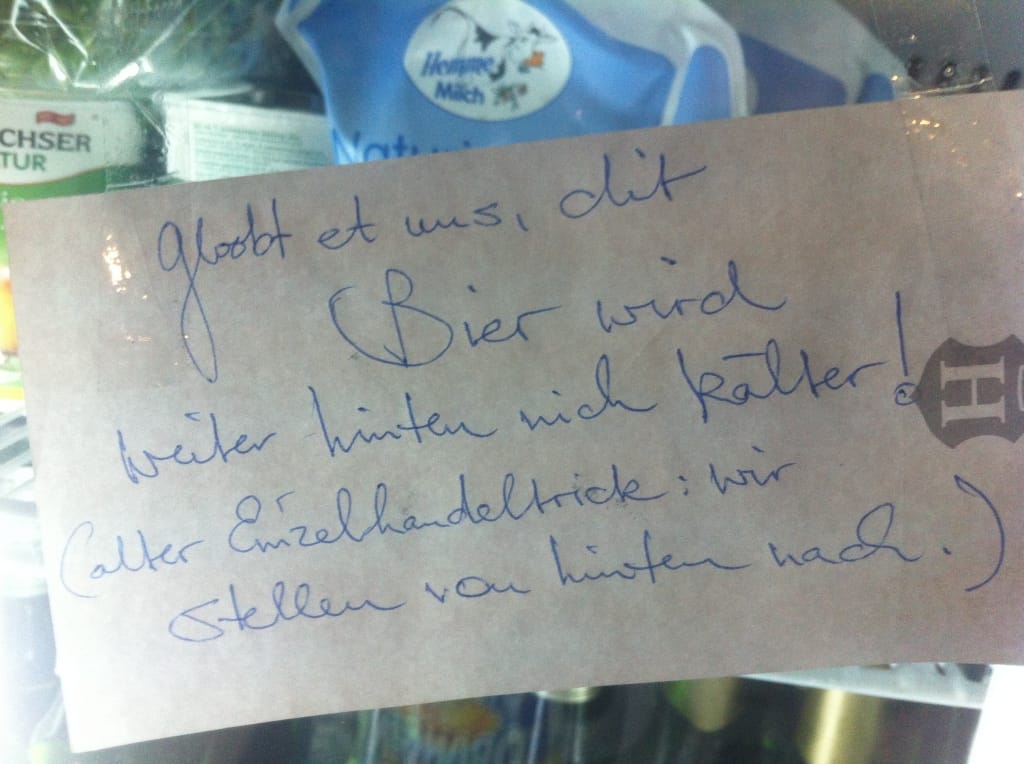 Hemme
Milch
Natur
CHSER
TUR
gloobt et uns, dit
Bier wird
weiter hinten nich kälter!
H
(alter Einzelhandeltrick: wir
stellen von hinten nach.)